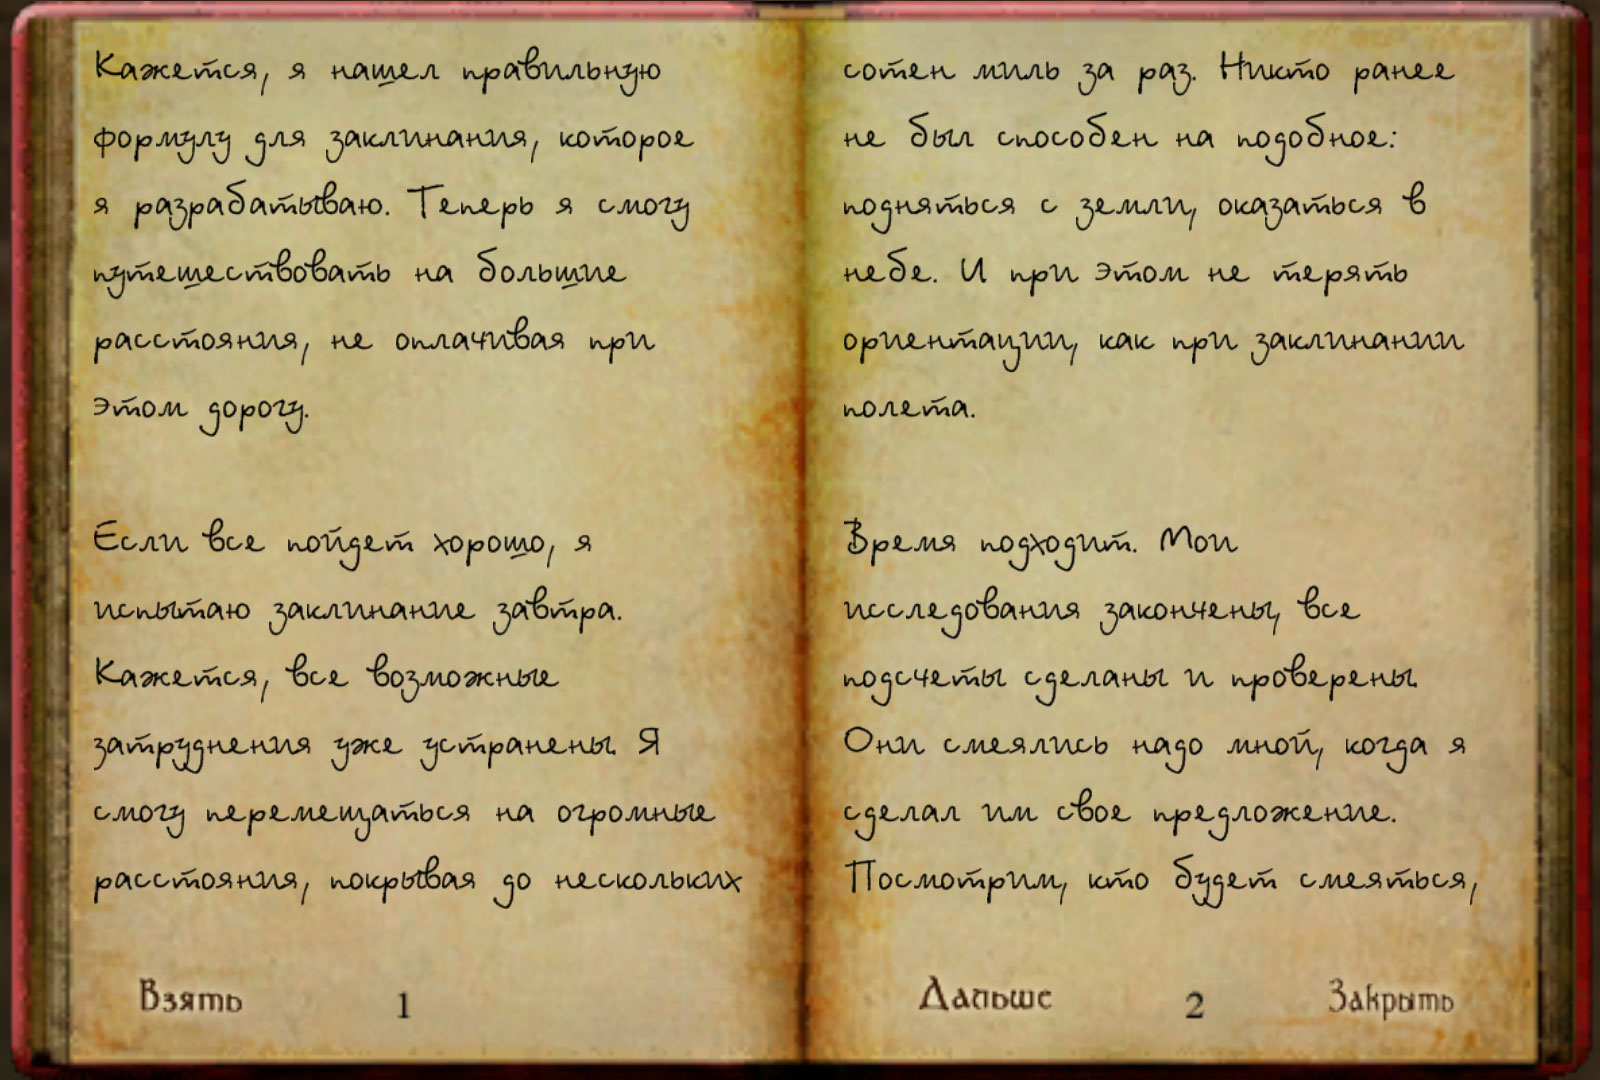 Кажется, я нашел правильную
формулу для заклинания, которое
я разрабатываю. Теперь я смогу
путешествовать на большие
расстояния, не оплачивая при
этом дорогу.
Если все пойдет хорошо, я
испытаю заклинание завтра.
Кажется, все возможные
затруднения уже устранены. Я
смогу перемещаться на огромные
расстояния, покрывая до нескольких
сотен миль за раз. Никто ранее
не был способен на подобное:
подняться с земли, оказаться в
небе. И при этом не терять
ориентации, как при заклинании
полета.
Время подходит. Мои
исследования закончены, все
подсчеты сделаны и проверены.
Они смеялись надо мной, когда я
сделал им свое предложение.
Посмотрим, кто будет смеяться,
Взять 1 Дальше 2 Закрыть